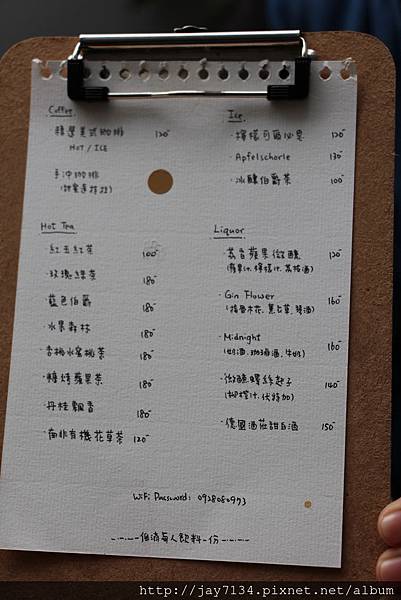 Coffee
精選美式咖啡 120
HOT / ICE
手沖咖啡
Hot Tea
紅玉紅茶 100
玫瑰綠茶 180
藍色伯爵 180
水果森林 180
香柚水蜜桃茶 180
糖烤蘋果茶 180
丹桂飄香 180
南非有機花草茶 120
Ice
檸檬可爾必思 120
Apfelschorle 130
冰釀伯爵茶 100
Liquor
荔香蘋果微醺 120
(蘋果汁、檸檬汁、荔枝酒)
Gin Flower 160
(接骨木花、蔓越莓、琴酒)
Midnight 160
(奶酒、咖啡酒、牛奶)
微醺螺絲起子 140
(柳橙汁、伏特加)
德國酒莊甜白酒 150
WiFi Password: 0928080973
低消每人飲料一份
http://jay7134.pixnet.net/album